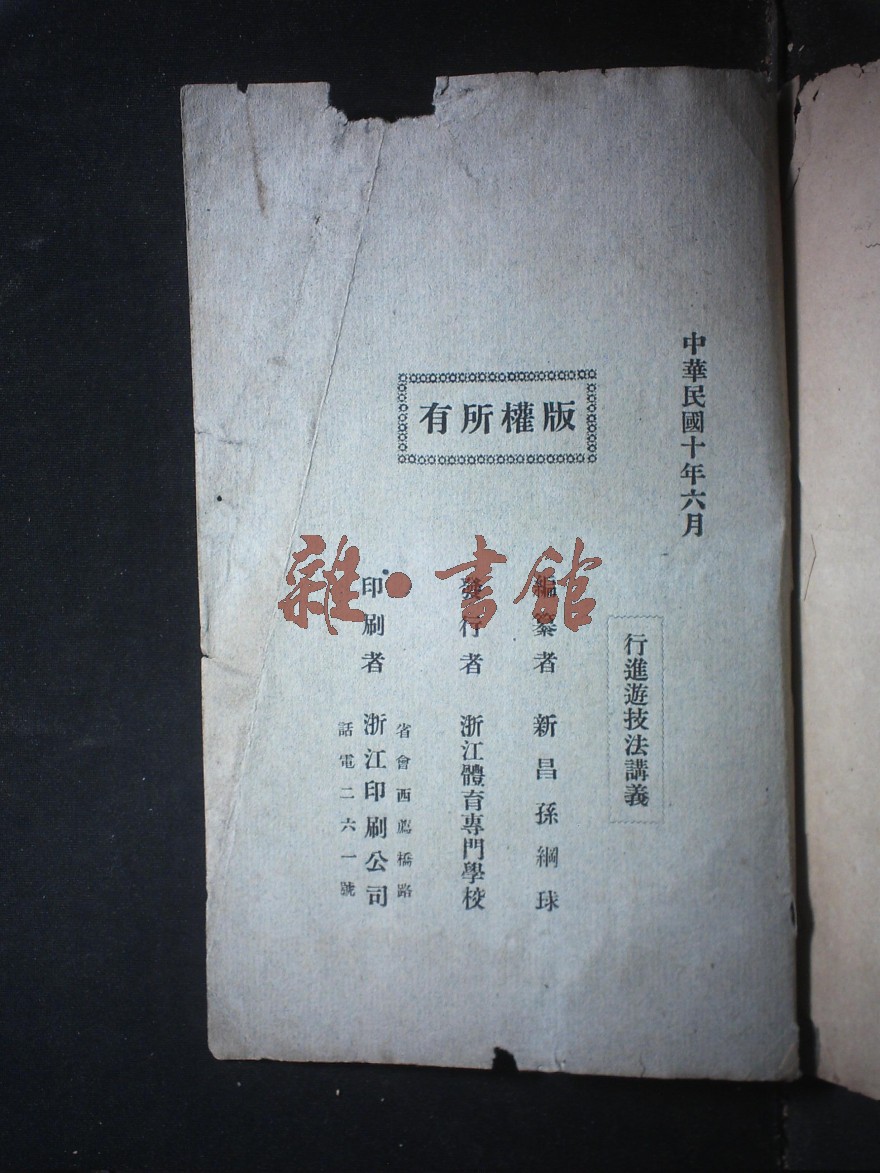 中華民國十年六月
行進遊技法講義
版權所有
編纂者 新昌孫綱球
發行者 浙江體育專門學校
印刷者 浙江印刷公司
省會西薦橋路
電話二六一號
雜·書館